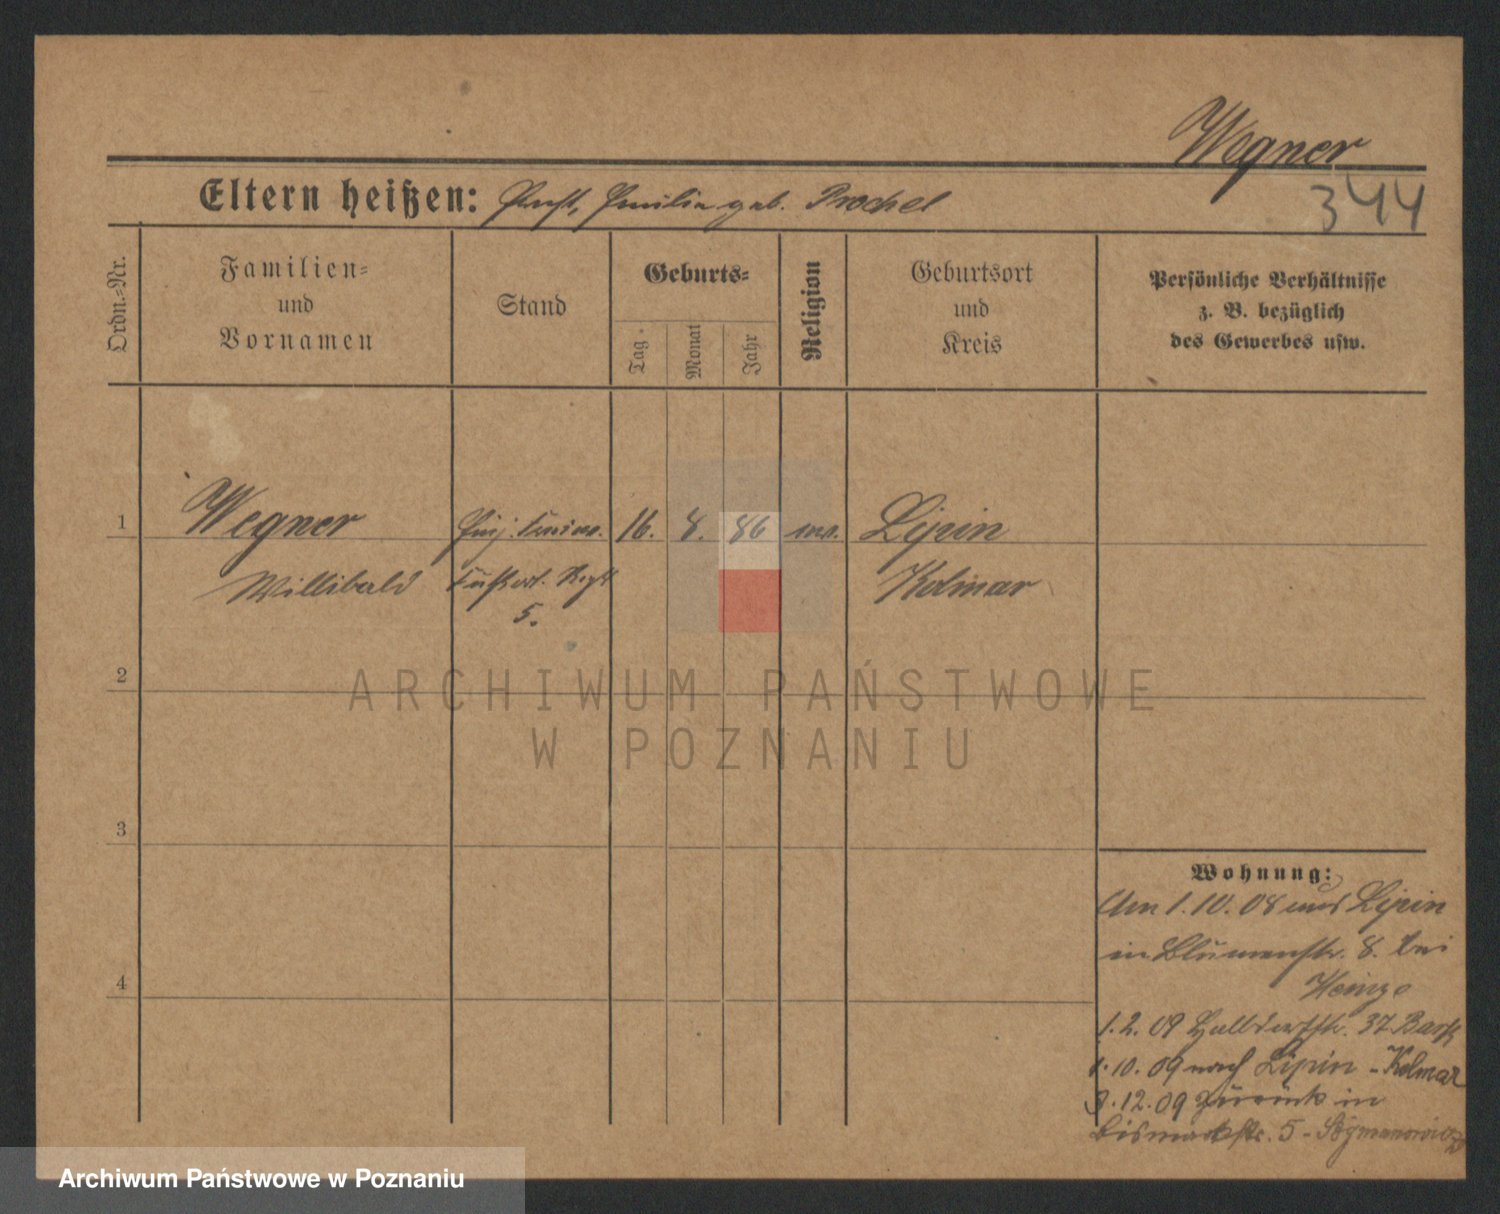 Wegner
344
Eltern heißen: Ernst, Emilie geb. Prochel
Ordn.-Nr.
Familien-
und
Vornamen
Stand
Geburts-
Tag.
Monat
Jahr
Religion
Geburtsort
und
Kreis
Persönliche Verhältnisse
z. B. bezüglich
des Gewerbes usw.
1 Wegner Einj. Freiw. 16. 8. 86 ev. Lipin
Willibald Fußart. Regt Kolmar
5.
2
ARCHIWUM PAŃSTWOWE
W POZNANIU
3
4
Wohnung:
Am 1.10.08 aus Lipin
in Blumenstr. 8. bei
Heinze
1.2.09 Halldorfstr. 37
1.10.09 nach Lipin - Kolmar
3.12.09 zurück in
Bismarckstr. 5 -
Archiwum Państwowe w Poznaniu